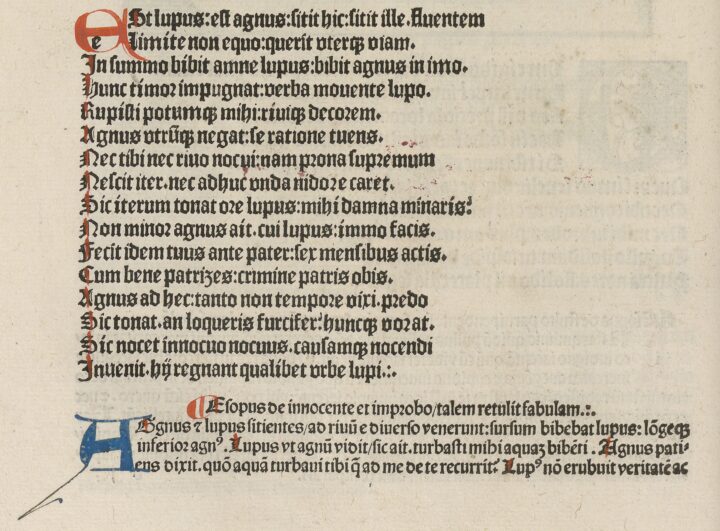 ESt lupus:est agnus:sitit hic:sitit ille. Fluentem
e limite non equo:querit vterqꝫ viam.
In summo bibit amne lupus:bibit agnus in imo.
Hunc timor impugnat:verba mouente lupo.
Rupisti potumqꝫ mihi:riuiqꝫ decorem.
Agnus vtrūqꝫ negat:se ratione tuens.
Nec tibi nec riuo nocui:nam prona supremum
Nescit iter.nec adhuc vnda nidore caret.
Sic iterum tonat ore lupus:mihi damna minaris?
Non minor agnus ait.cui lupus:immo facis.
Fecit idem tuus ante pater:sex mensibus actis.
Cum bene patrizes:crimine patris obis.
Agnus ad hec:tanto non tempore vixi.predo
Sic tonat.an loqueris furcifer?huncqꝫ vorat.
Sic nocet innocuo nocuus.causamqꝫ nocendi
Inuenit.hij regnant qualibet vrbe lupi.:.
Esopus de innocente et improbo/talem retulit fabulam.:.
AGnus ⁊ lupus sitientes/ad riuū e diuerso venerunt:sursum bibebat lupus: lōgeqꝫ
inferior agnꝰ. Lupus vt agnū vidit/sic ait.turbasti mihi aquaꝫ bibēti. Agnus pati-
ens dixit. quō aquā turbaui tibi q̄ ad me de te recurrit? Lupꝰ nō erubuit veritatē ac